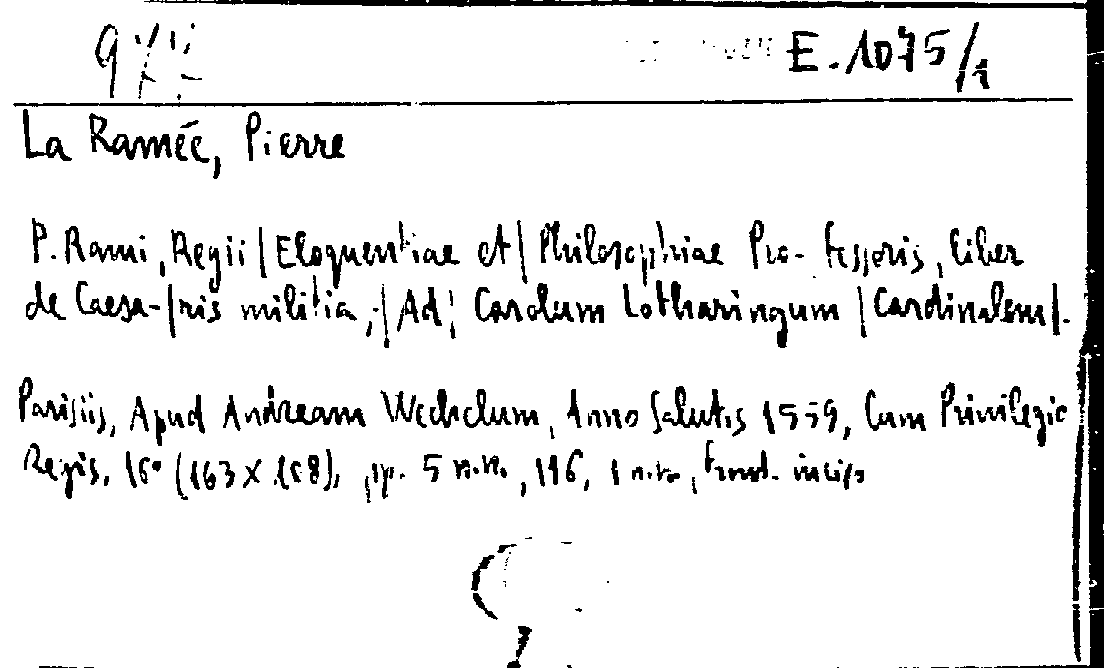 E.1075/1
La Ramée, Pierre
P. Rami, Regii | Eloquentiae et | Philosophiae Pro- fessoris, Liber
de Caesa-|ris militia, | Ad | Carolum Lotharingum | Cardinalem |.
Parisiis, Apud Andream Wechelum, Anno Salutis 1559, Cum Privilegio
Regis, 16° (163 X 108), pp. 5 n.n., 116, 1 n.n., front. inciso